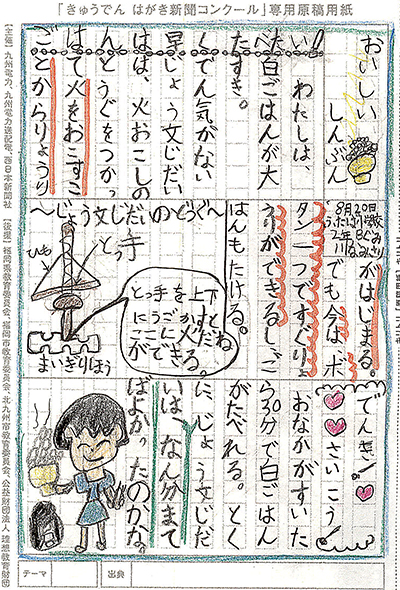 「きゅうでん はがき新聞コンクール」専用原稿用紙
【主催】九州電力、九州電力送配電、西日本新聞社
【後援】福岡県教育委員会、福岡市教育委員会、北九州市教育委員会、公益財団法人 理想教育財団
おいしい
しんぶん
8月20日
ごはん早くたべたい!
わたしは、
白ごはんが大
すき。
でん気がない
じょう文じだい
は、火おこしの
どうぐをつかっ
て火をおこすこ
とからりょうり
がはじまる。
でも今は、ボ
タン一つですぐりょ
うりができるし、ご
はんもたける。
〜じょう文じだいのどうぐ〜
とっ手
ひも
まいぎりほう
とっ手を上下
でんき!
さいこう!
おなかがすいた
ら30分で白ごはん
がたべれる。とく
に、じょう文じだ
いは、なん分まて
ばよかったのかな。
テーマ
出典